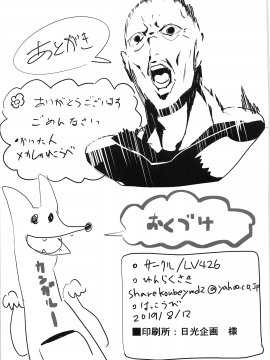 あとがき
ありがとうございます
ごめんなさい
・かいた人
カンガルー
おくづけ
○ サークル/LV426
○ れんらくさき
○ はっこうび
2019/8/12
■印刷所：日光企画 様